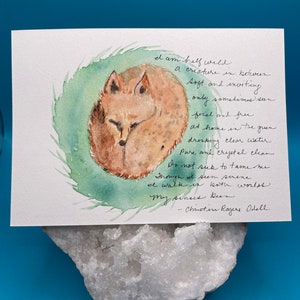 I am half wild
a creature in between
soft and exciting
only sometimes seen
feral and free
at home in the green
drinking clear water
Pure and crystal clean
Do not seek to tame me
Though I seem serene
I walk in both worlds
My senses keen
- Christine Rogers Odell